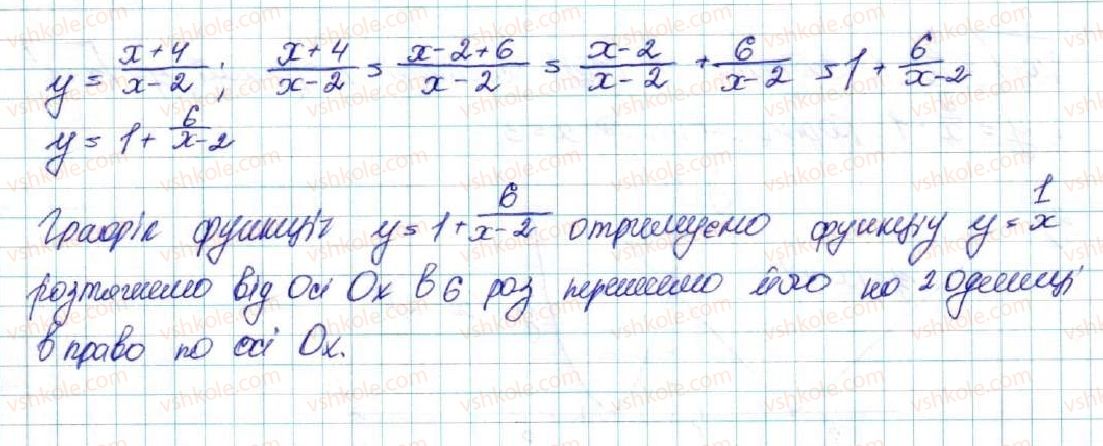 y = (x+4)/(x-2); (x+4)/(x-2) = (x-2+6)/(x-2) = (x-2)/(x-2) + 6/(x-2) = 1 + 6/(x-2)
y = 1 + 6/(x-2)
Графік функції y = 1 + 6/(x-2) отримуємо функцію y = 1/x
розтягнемо від осі Ox в 6 раз перенемо його на 2 одиниці
в право по осі Ox.